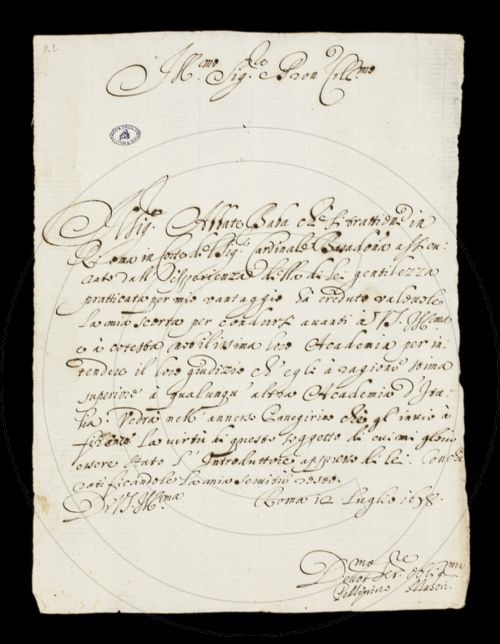 Ill.mo Sig.re Pron Coll.mo
Il Sig.r Abbate Baba che si trattiene in
Roma in Corte del Sig.r Cardinale Basadona assicu-
rato dall' esperienza della di lei gentilezza
pratticata per mio vantaggio hà creduto valevole
la mia scorta per condursi avanti à V.S. Ill.ma
e à cotesta nobilissima loro Academia per in-
tendere il loro giudizio ch' egli à ragione stima
superiore à qualunqu' altra Academia d' Ita-
lia. Vedrà nell' annesso Panegirico che gl' invio à
la virtù di questo soggetto di cui mi glorio
essere stato l' Introduttore appresso di lei. Con che
ratificandole la mia servitù resto.
Di V.S. Ill.ma
Roma 12 Luglio 1678.
Devot.mo Ser.re Oblig.mo
Pellegrino Maseri